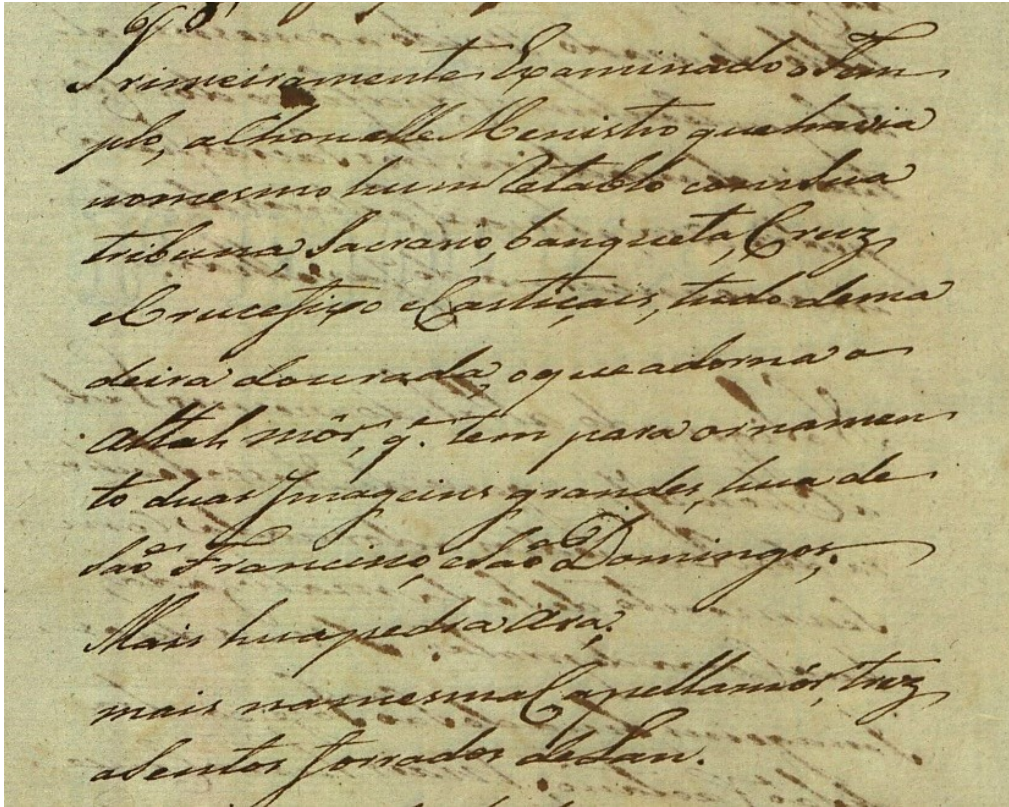 Primeiramente Examinado o Tem
plo, achou elle Menistro que havia
no mesmo hum Retablo com sua
tribuna, Sacrario, banqueta, Cruz
e Crucefixo e Castiçais, tudo de ma
deira dourada, o que adorna o
Altal mór, q. tem para ornamen
to duas Imageins grandes, hua de
São Francisco, e São Domingos;
Mais hua pedra Ara,
mais na mesma Capella mór, trez
asentos forrados de Lan.